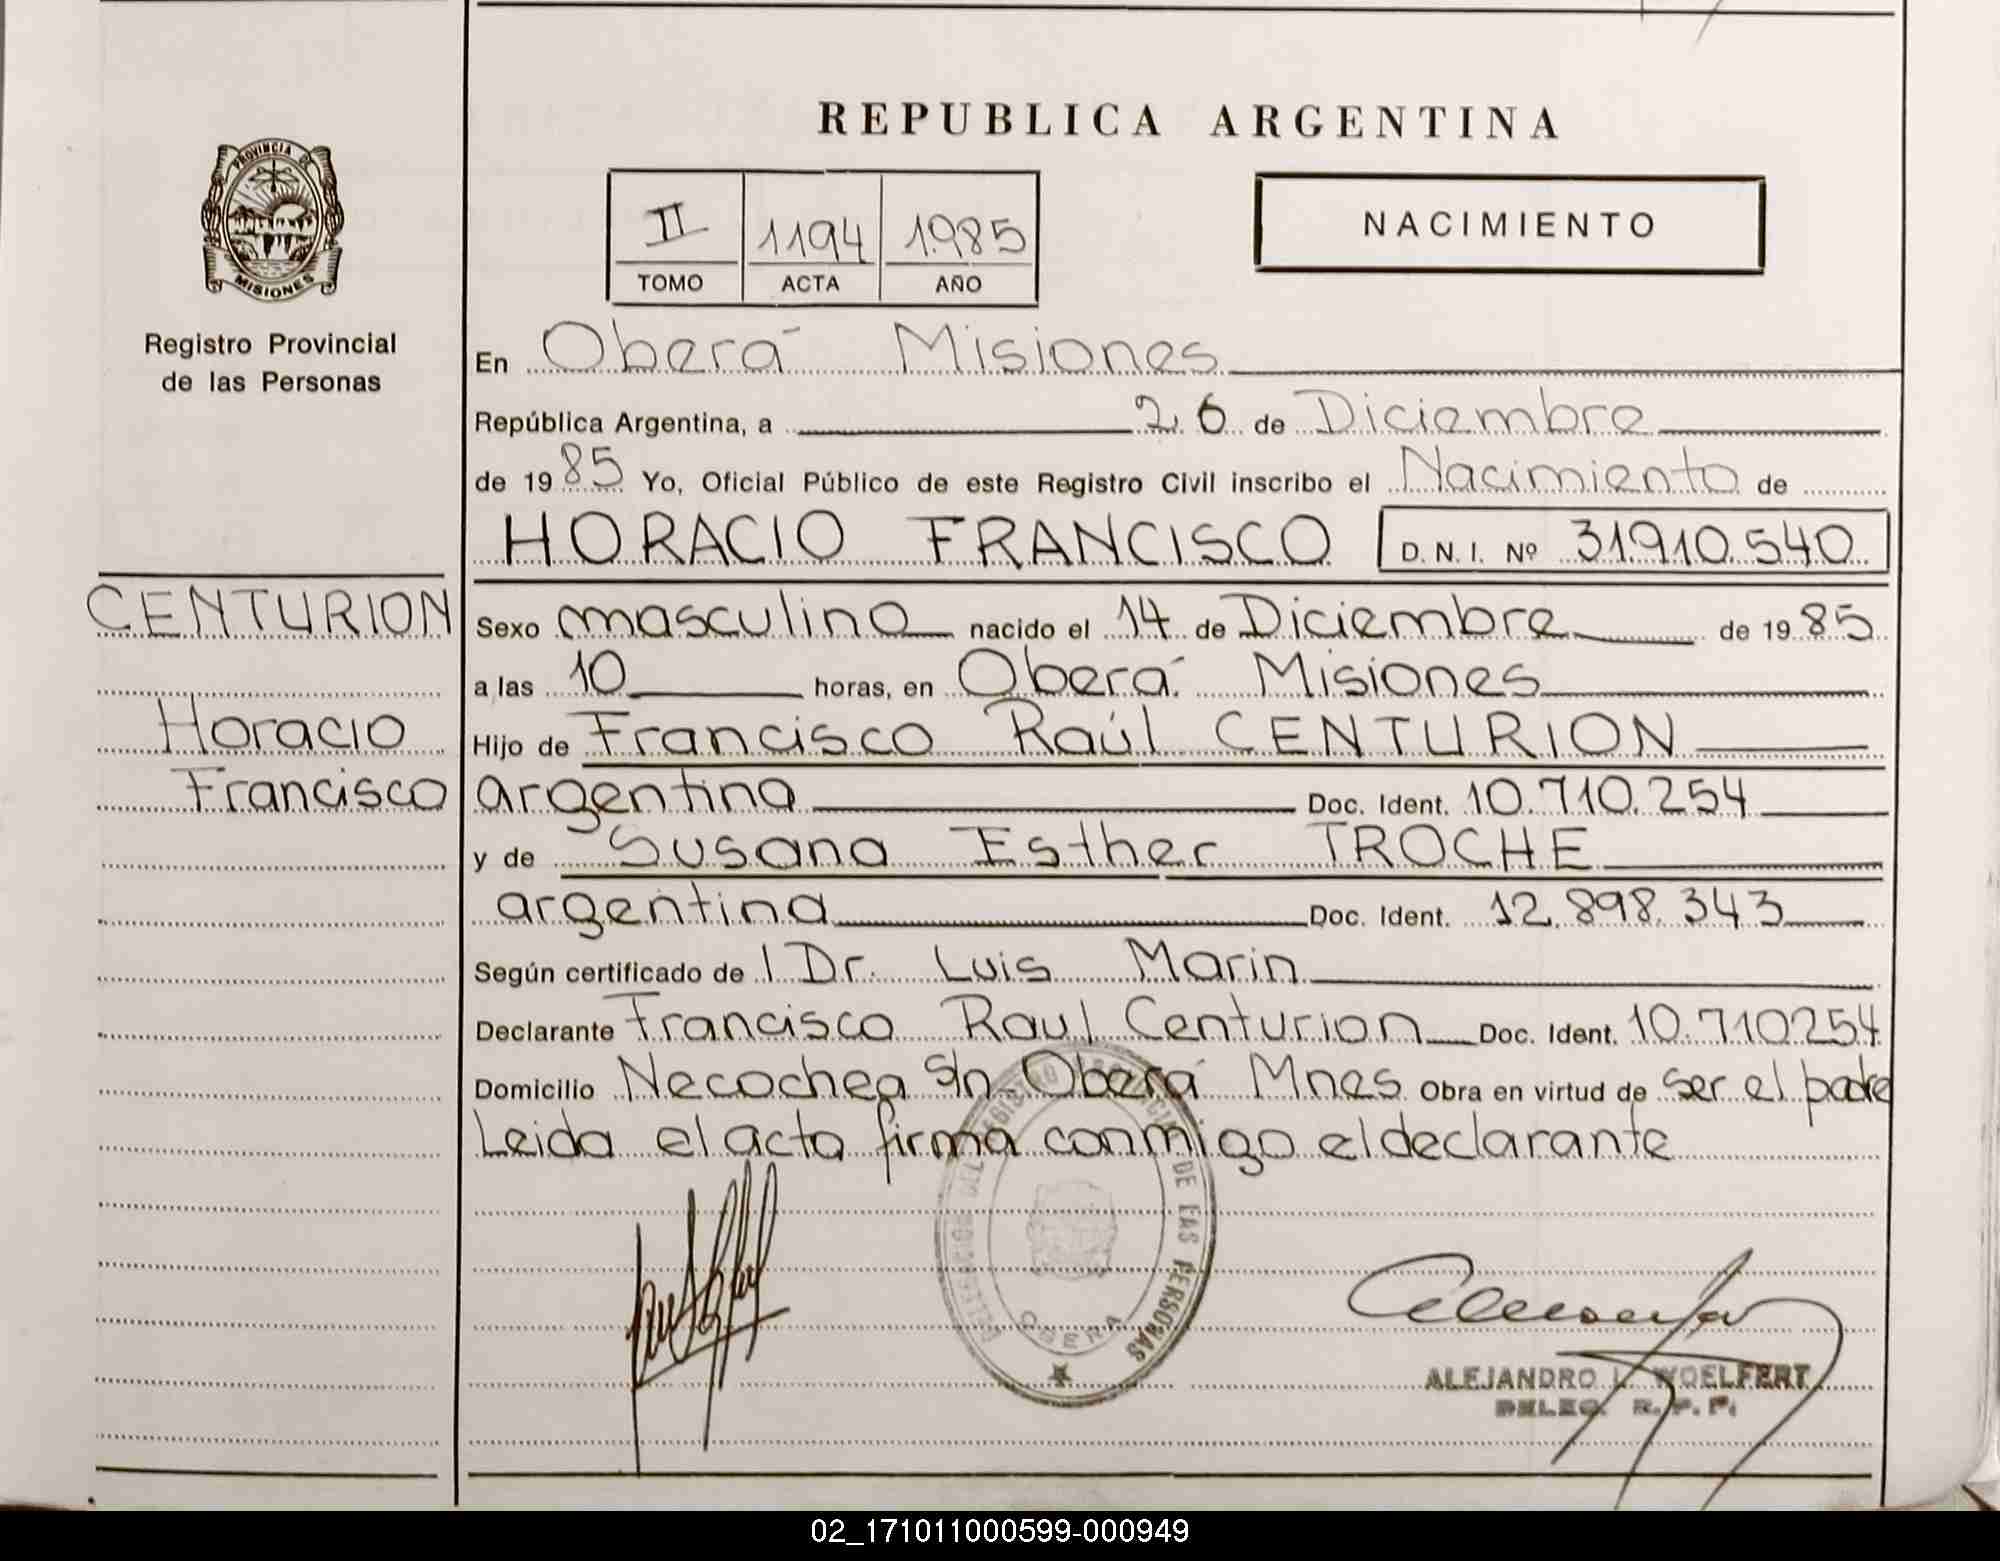 REPUBLICA ARGENTINA
PROVINCIA DE
MISIONES
Registro Provincial
de las Personas
II 1194 1985
TOMO ACTA AÑO
NACIMIENTO
En Oberá Misiones
República Argentina, a 26 de Diciembre
de 1985 Yo, Oficial Público de este Registro Civil inscribo el Nacimiento de
HORACIO FRANCISCO D. N. I. Nº 31.910.540
CENTURION
Horacio
Francisco
Sexo masculino nacido el 14 de Diciembre de 1985
a las 10 horas, en Oberá Misiones
Hijo de Francisco Raúl CENTURION
argentina Doc. Ident. 10.710.254
y de Susana Esther TROCHE
argentina Doc. Ident. 12.898.343
Según certificado de l Dr. Luis Marin
Declarante Francisco Raul Centurion Doc. Ident. 10.710254
Domicilio Necochea s/n Oberá Mnes Obra en virtud de ser el padre
Leida el acta firma conmigo el declarante
DELEGACION DEL REGISTRO PROVINCIAL DE LAS PERSONAS
OBERA
ALEJANDRO L. WOELFERT
DELEG. R. P. P.
02_171011000599-000949